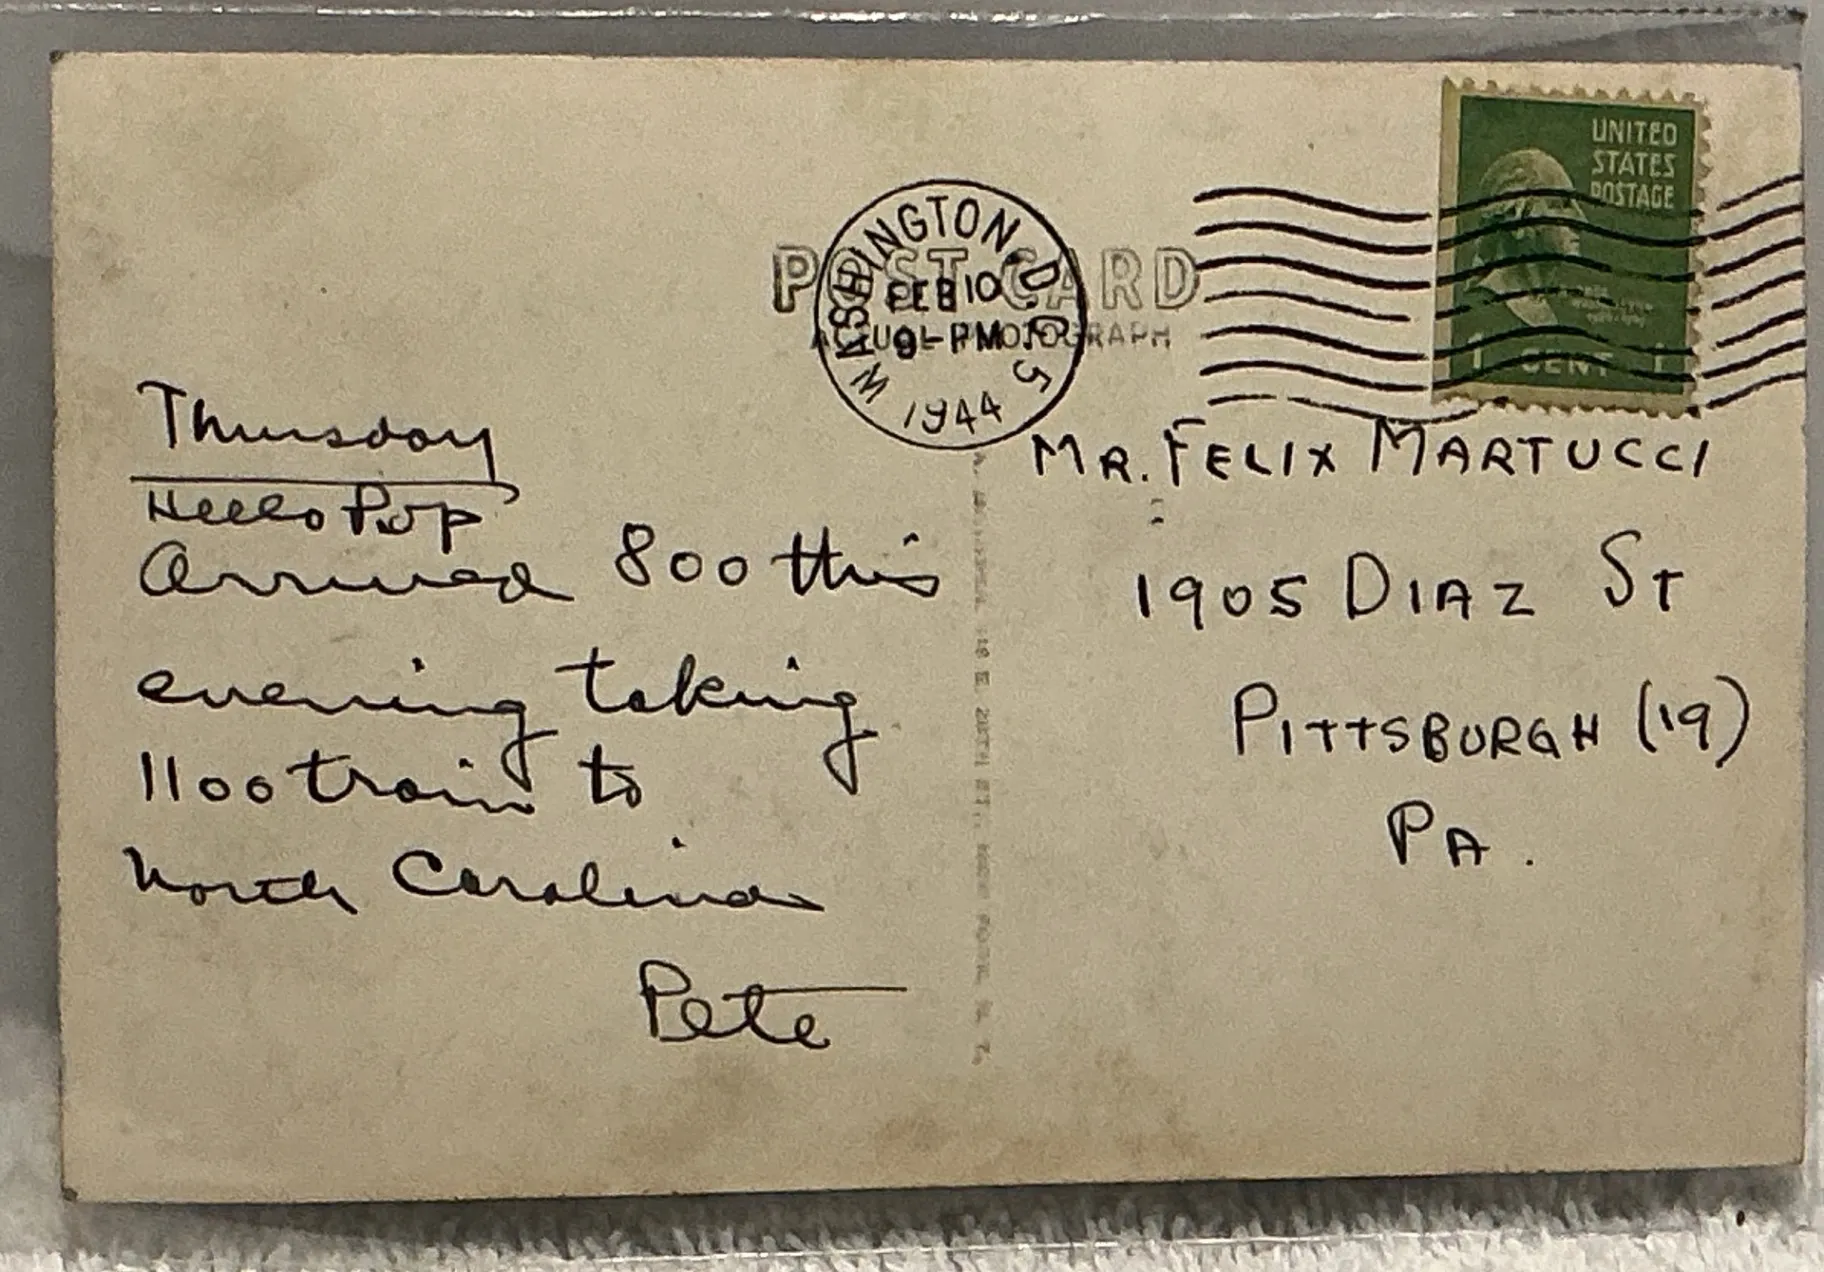 POST CARD
ACTUAL PHOTOGRAPH
WASHINGTON, D.C. 5
FEB 10
9-PM
1944
UNITED
STATES
POSTAGE
1 CENT 1
Thursday
Hello Pop
Arrived 800 this
evening taking
1100 train to
North Carolina
Pete
MR. FELIX MARTUCCI
1905 DIAZ ST
PITTSBURGH (19)
PA.